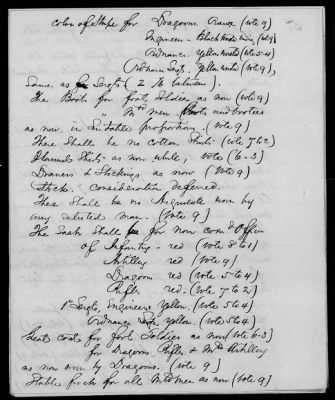 color of Stripe for Dragoons Orange (vote 9)
Engineer - Black
Ordnance Yellow (vote 5-4)
Ordnance Sergt. Yellow (vote 9),
Same as for Sergts (2
The Boots for foot Soldier as now (vote 9)
" Mtd men Boots and bootees
as now, in Suitable proportions. (vote 9)
There Shall be no Cotton Shirt - (vote 7 to 2)
Flannel Shirt - as now white, vote (6-3)
Drawers & Stockings as now (vote 9)
Stock. consideration deferred.
There Shall be no Aiguilette worn by
any enlisted man. (vote 9)
The Sash Shall be for non comd Officers
of Infantry - red (vote 8 to 1)
Artillery red (vote 9)
Dragoon red (vote 5 to 4)
Rifle red - (vote 7 to 2)
1st Sergts, Engineers Yellow. (vote 5 to 4)
Ordnance Yellow. (vote 5 to 4)
Great coats for foot Soldier as now (vote 6-3)
for Dragoons Rifles & Mtd Artillery
as now worn by Dragoons. (vote 9)
Stable frock for all Mtd Men as now (vote 9)